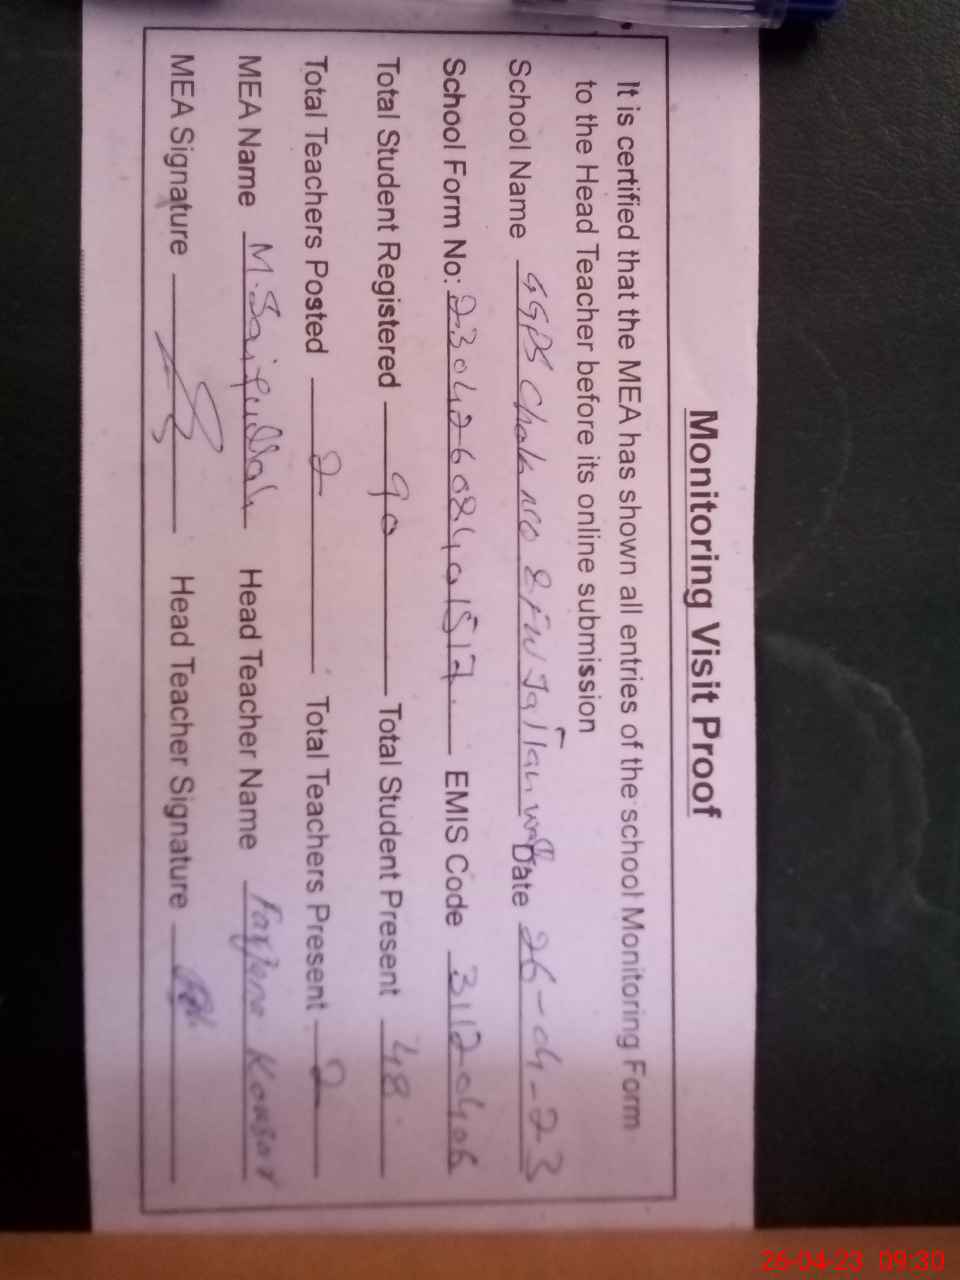 Monitoring Visit Proof
It is certified that the MEA has shown all entries of the school Monitoring Form
to the Head Teacher before its online submission
School Name GGPS Chak no 8 FW Jallan wala Date 26-04-23
School Form No: 23042608401517 EMIS Code 31120406
Total Student Registered 90 Total Student Present 48
Total Teachers Posted 2 Total Teachers Present 2
MEA Name M. Saifullah Head Teacher Name Farzana Kousar
MEA Signature Head Teacher Signature
26-04-23 09:30